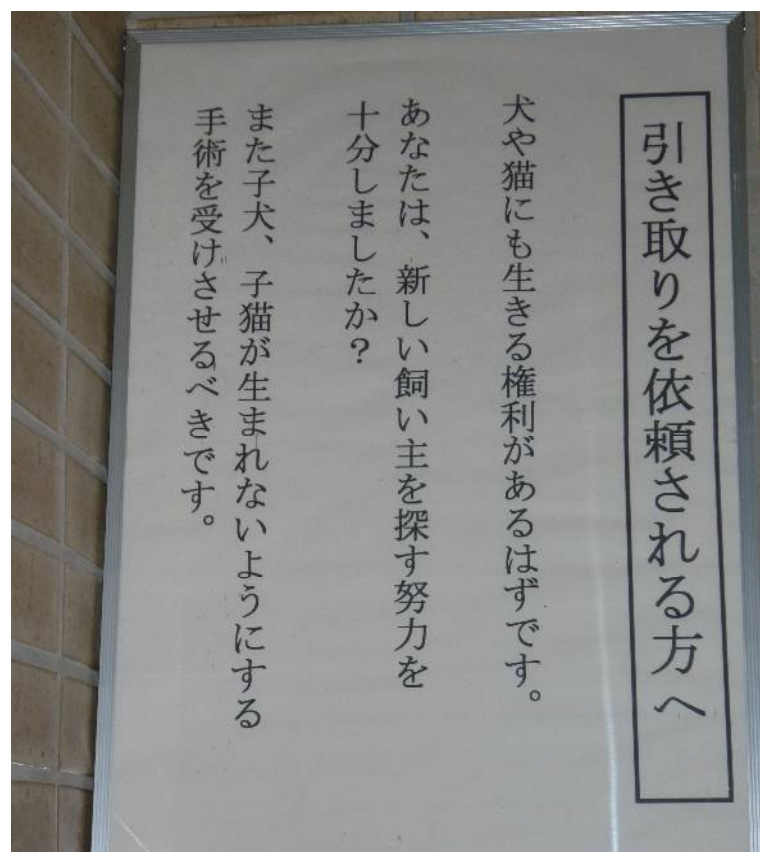 引き取りを依頼される方へ
犬や猫にも生きる権利があるはずです。
あなたは、新しい飼い主を探す努力を
十分しましたか？
また子犬、子猫が生まれないようにする
手術を受けさせるべきです。